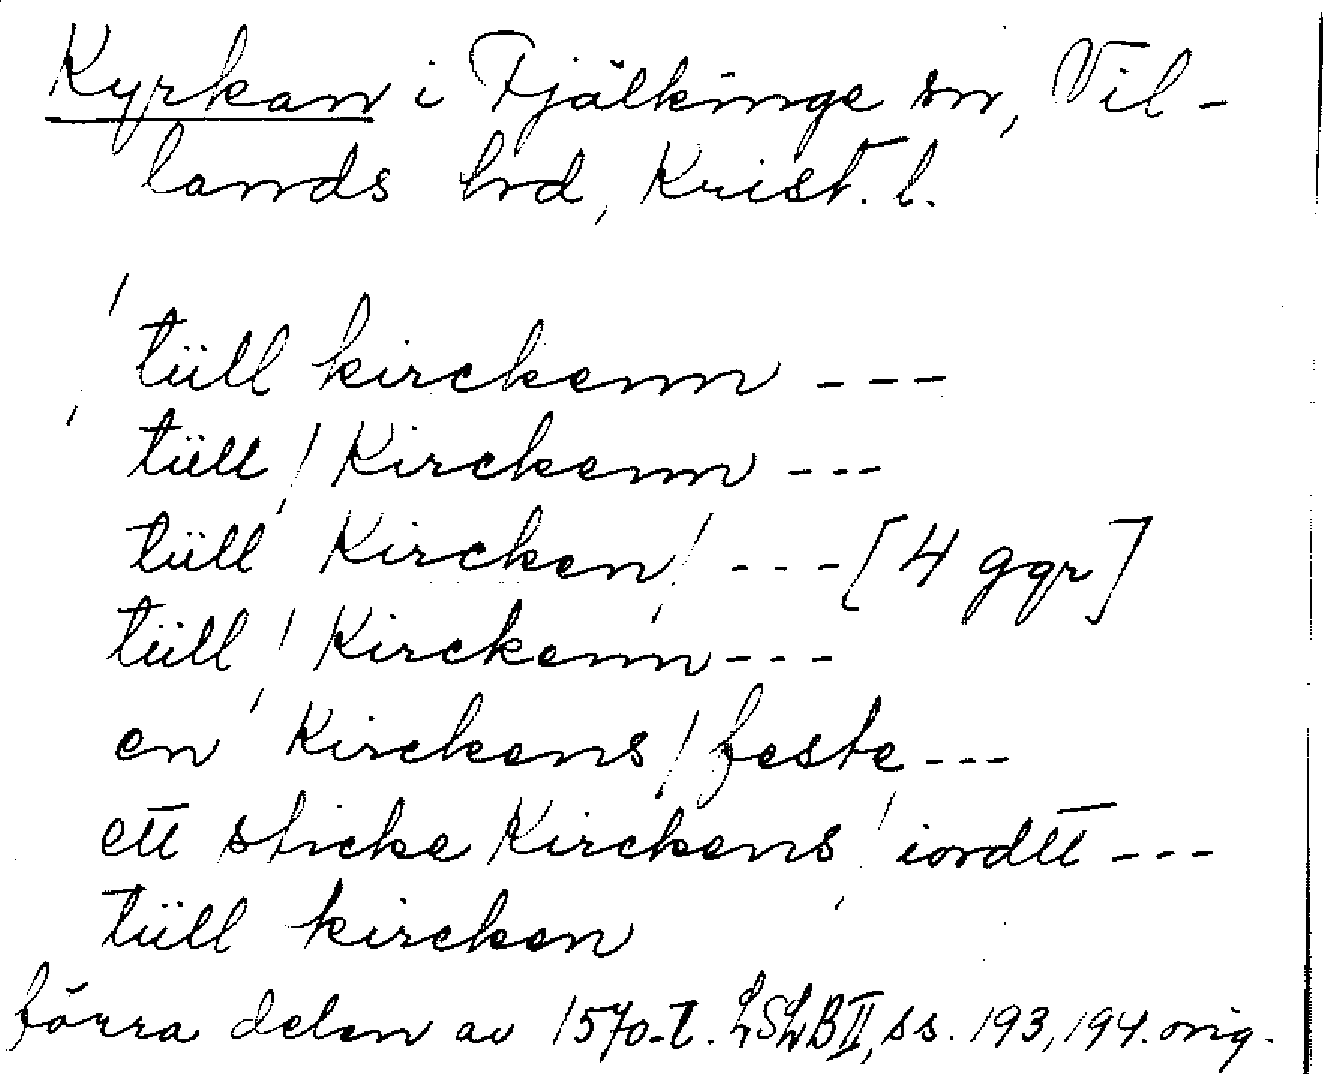 Kyrkan i Fjälkinge sn, Vil-
lands hd, Krist. l.
tüll kirckenn ---
tüll / Kirckenn ---
tüll Kircken / --- [4 ggr]
tüll / Kirckenn ---
en Kirckens / feste ---
ett sticke Kirckens / iordtt ---
tüll kircken
förra delen av 1570-t. LSLB II, ss. 193, 194. orig.